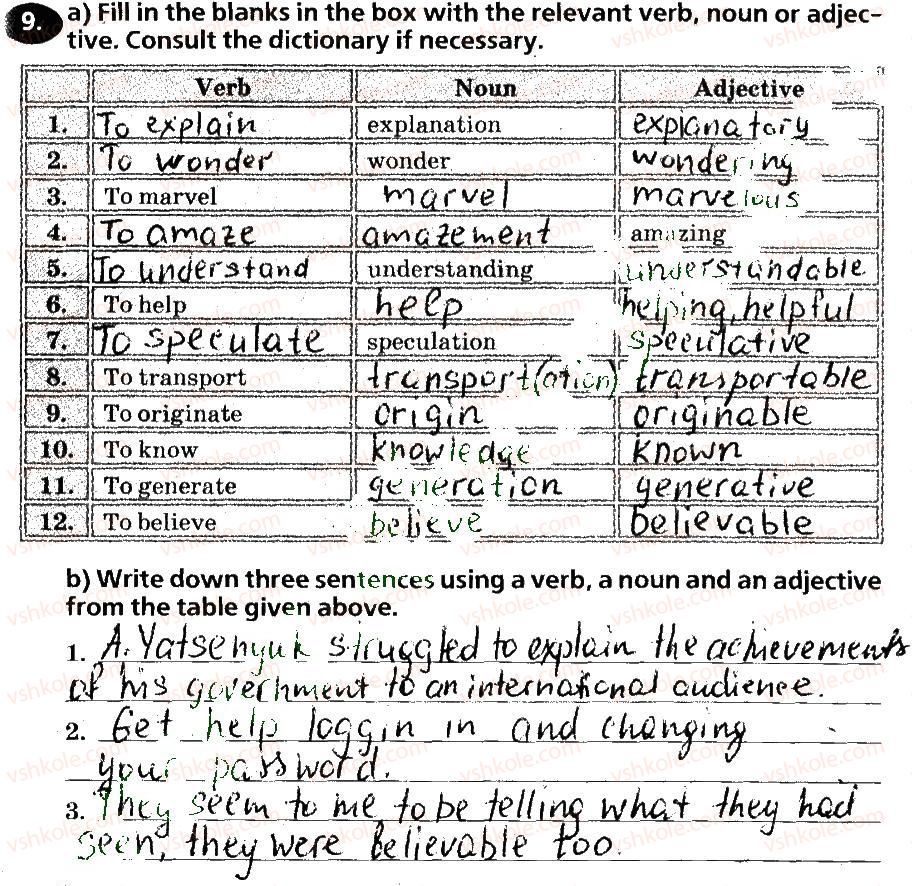 9. a) Fill in the blanks in the box with the relevant verb, noun or adjec-
tive. Consult the dictionary if necessary.
Verb Noun Adjective
1. To explain explanation explanatory
2. To wonder wonder wondering
3. To marvel marvel marvelous
4. To amaze amazement amazing
5. To understand understanding understandable
6. To help help helping, helpful
7. To speculate speculation speculative
8. To transport transport(ation) transportable
9. To originate origin originable
10. To know knowledge known
11. To generate generation generative
12. To believe believe believable
b) Write down three sentences using a verb, a noun and an adjective
from the table given above.
1. A. Yatsenyuk struggled to explain the achievements
of his government to an international audience.
2. Get help loggin in and changing
your password.
3. They seem to me to be telling what they had
seen, they were believable too.
vshkole.com